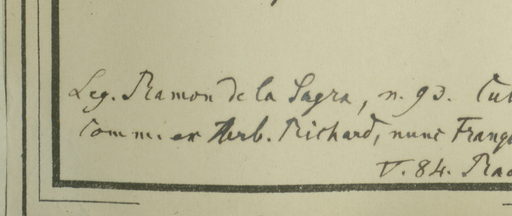 Leg. Ramon de la Sagra, n. 93. Cu
Comm. ex Herb. Richard, nunc Franq
V. 84. Ra